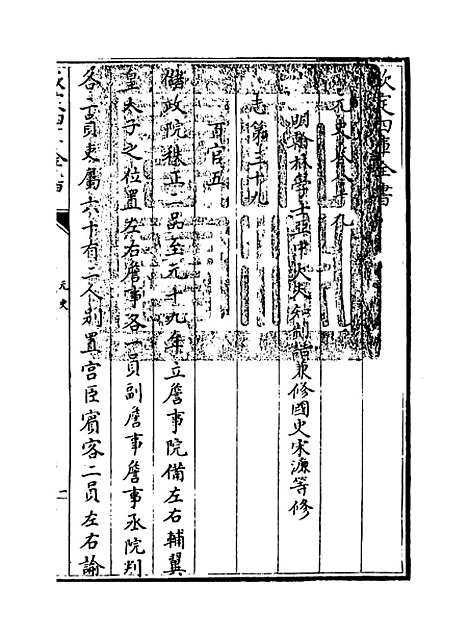 欽定四庫全書
元史卷八十九
明翰林學士亞中大夫知制誥兼修國史宋濂等修
志第三十九
百官五
儲政院秩正二品至元十九年立詹事院備左右輔翼
皇太子之位置左右詹事各一員副詹事詹事丞院判
各二員吏屬六十有二人别置宫臣賓客二員左右諭
欽定四庫全書
元史
一